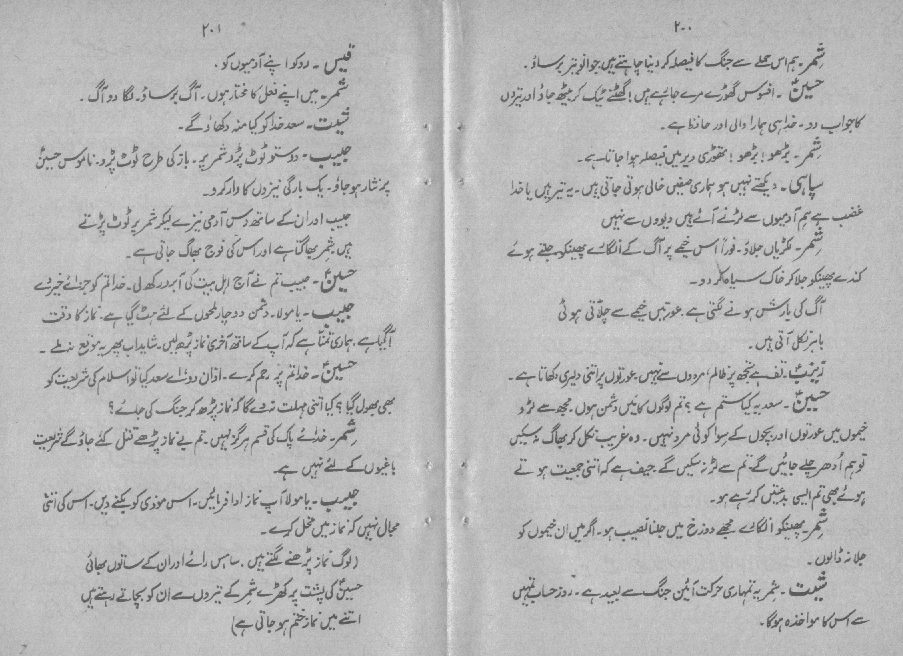 ۲۰۰
شمر۔ ہم اس حملے سے جنگ کا فیصلہ کر دینا چاہتے ہیں جوانو تیر برساؤ۔
حسینؑ۔ افسوس گھوڑے مرے جاتے ہیں! گھٹنے ٹیک کر بیٹھ جاؤ اور تیروں
کا جواب دو۔ خدا ہی ہمارا والی اور حافظ ہے۔
شمر۔ بڑھو! بڑھو! تھوڑی دیر میں فیصلہ ہوا جاتا ہے۔
سپاہی۔ دیکھتے نہیں ہو ہماری صفیں خالی ہوتی جاتی ہیں۔ یہ تیر ہیں یا خدا
غضب ہے ہم آدمیوں سے لڑنے آئے ہیں دیووں سے نہیں
شمر۔ لکڑیاں جلاؤ۔ فوراً اس خیمے پر آگ کے انگارے پھینکو۔ جلتے ہوئے
کندے پھینکو جلا کر خاک سیاہ کر دو۔
آگ کی بارش ہونے لگتی ہے۔ عورتیں خیمے سے چلّاتی ہوئی
باہر نکل آتی ہیں۔
زینبؑ۔ تف ہے تجھ پر ظالم، مردوں سے نہیں۔ عورتوں پر اپنی دلیری دکھاتا ہے۔
حسینؑ۔ سعد یہ کیا ستم ہے؟ تم لوگوں کا میں دشمن ہوں۔ مجھ سے لڑو
خیموں میں عورتوں اور بچوں کے سوا کوئی مرد نہیں۔ وہ غریب نکل کر بھاگ نہ سکیں
تو ہم اُدھر چلے جائیں گے۔ تم سے لڑ نہ سکیں گے۔ حیف ہے کہ اتنی جمعیت ہوتے
ہوئے بھی تم ایسی بدعتیں کر رہے ہو۔
شمر۔ پھینکو انگارے مجھے دوزخ میں جلنا نصیب ہو۔ اگر میں ان خیموں کو
جلا نہ ڈالوں۔
شیث۔ شمر یہ تمہاری حرکت آئین جنگ سے بعید ہے۔ روز حساب تمہیں
سے اس کا مواخذہ ہوگا۔
۲۰۱
قیس۔ روکو اپنے آدمیوں کو۔
شمر۔ میں اپنے فعل کا مختار ہوں۔ آگ برساؤ۔ لگا دو آگ۔
شیث۔ سعد خدا کو کیا منہ دکھاؤ گے۔
حبیب۔ دوستو ٹوٹ پڑو شمر پر۔ باز کی طرح ٹوٹ پڑو۔ ناموس حسینؑ
پر نثار ہو جاؤ۔ یک بارگی نیزوں کا وار کرو۔
حبیب اور ان کے ساتھ دس آدمی نیزے لیکر شمر پر ٹوٹ پڑتے
ہیں۔ شمر بھاگتا ہے اور اس کی فوج بھاگ جاتی ہے۔
حسینؑ۔ حبیب تم نے آج اہل بیت کی آبرو رکھ لی۔ خدا تم کو جزائے خیر دے
حبیب۔ یا مولا۔ دشمن دو چار لمحوں کے لئے ہٹ گیا ہے۔ نماز کا وقت
آ گیا ہے ہماری تمنّا ہے کہ آپ کے ساتھ آخری نماز پڑھ لیں۔ شاید اب پھر یہ موقع نہ ملے۔
حسینؑ۔ خدا تم پر رحم کرے۔ اذان دو۔ اے سعد کیا تو اسلام کی شریعت کو
بھی بھول گیا؟ کیا اتنی مہلت نہ دے گا کہ نماز پڑھ کر جنگ کی جائے؟
شمر۔ خدائے پاک کی قسم ہرگز نہیں۔ تم بے نماز پڑھے قتل کئے جاؤ گے شریعت
باغیوں کے لئے نہیں ہے۔
حبیب۔ یا مولا آپ نماز ادا فرمائیں۔ اس موذی کو بکنے دیں۔ اس کی اتنی
مجال نہیں کہ نماز میں مخل کرے۔
(لوگ نماز پڑھنے لگتے ہیں۔ ساہس رائے اور ان کے ساتوں بھائی
حسینؑ کی پشت پر کھڑے شمر کے تیروں سے ان کو بچاتے رہتے ہیں
اتنے میں نماز ختم ہو جاتی ہے)